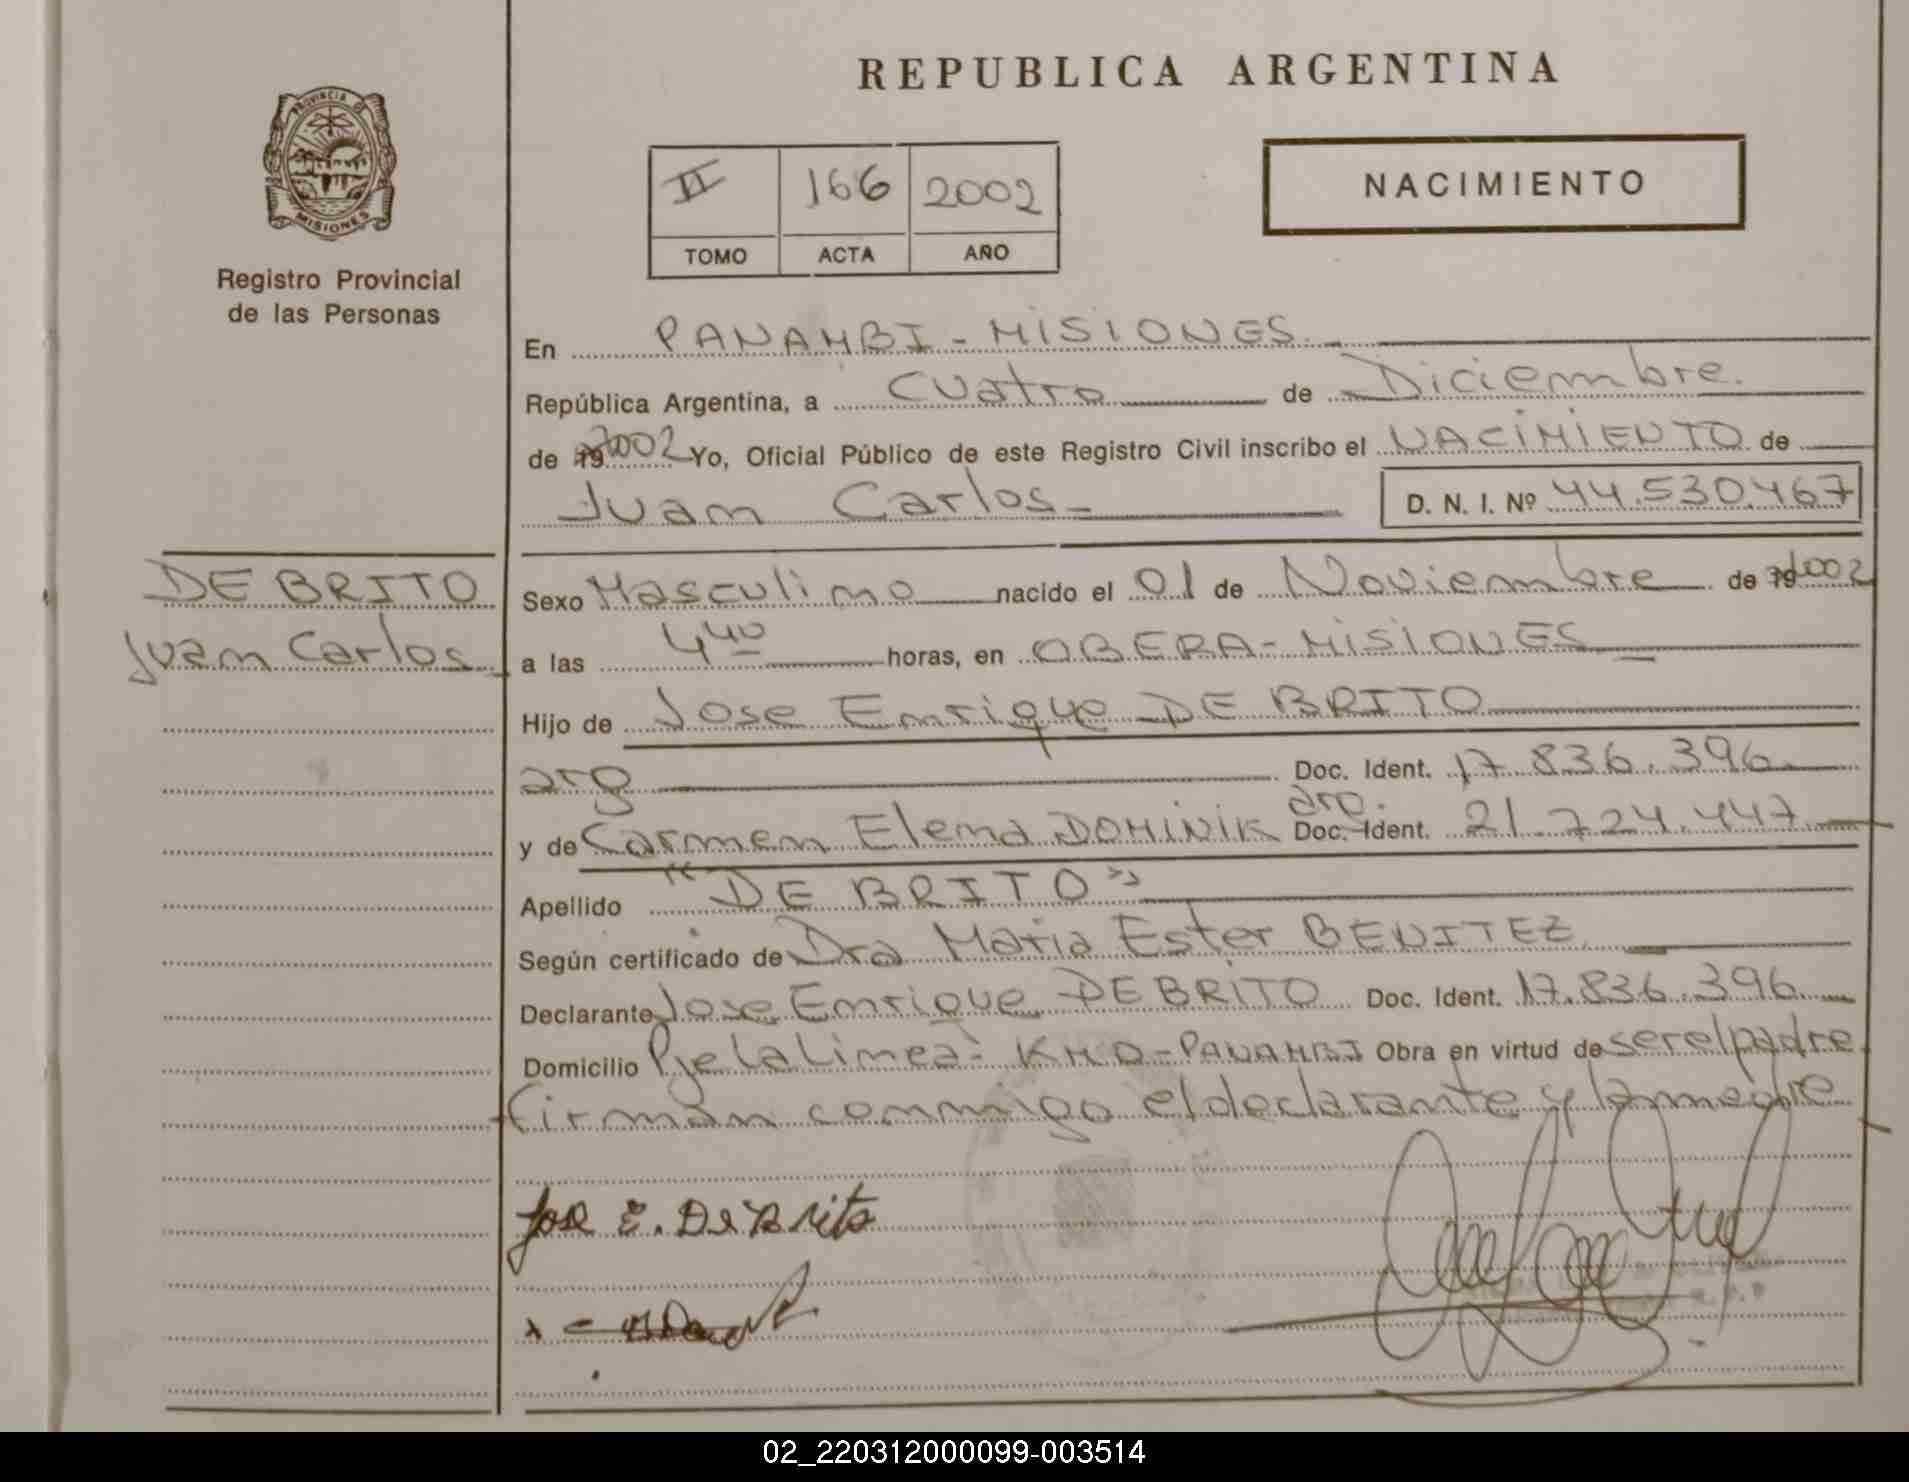 REPUBLICA ARGENTINA
PROVINCIA DE
MISIONES
Registro Provincial
de las Personas
II 166 2002
TOMO ACTA AÑO
NACIMIENTO
En PANAMBI - MISIONES.
República Argentina, a Cuatro de Diciembre.
de 19 2002 Yo, Oficial Público de este Registro Civil inscribo el NACIMIENTO de
Juan Carlos D. N. I. Nº 44.530.467
DE BRITO
Juan Carlos
Sexo Masculino nacido el 01 de Noviembre de 19 2002
a las 4 40 horas, en OBERA - MISIONES
Hijo de Jose Enrique DE BRITO
arg Doc. Ident. 17.836.396
arg.
y de Carmen Elena DOMINIK Doc. Ident. 21.724.447
Apellido "DE BRITO"
Según certificado de Dra Maria Ester BENITEZ
Declarante Jose Enrique DE BRITO Doc. Ident. 17.836.396
Domicilio Pje La Linea - KM 0 - PANAMBI Obra en virtud de ser el padre
firman conmigo el declarante y la madre
Jose E. De Brito
02_220312000099-003514